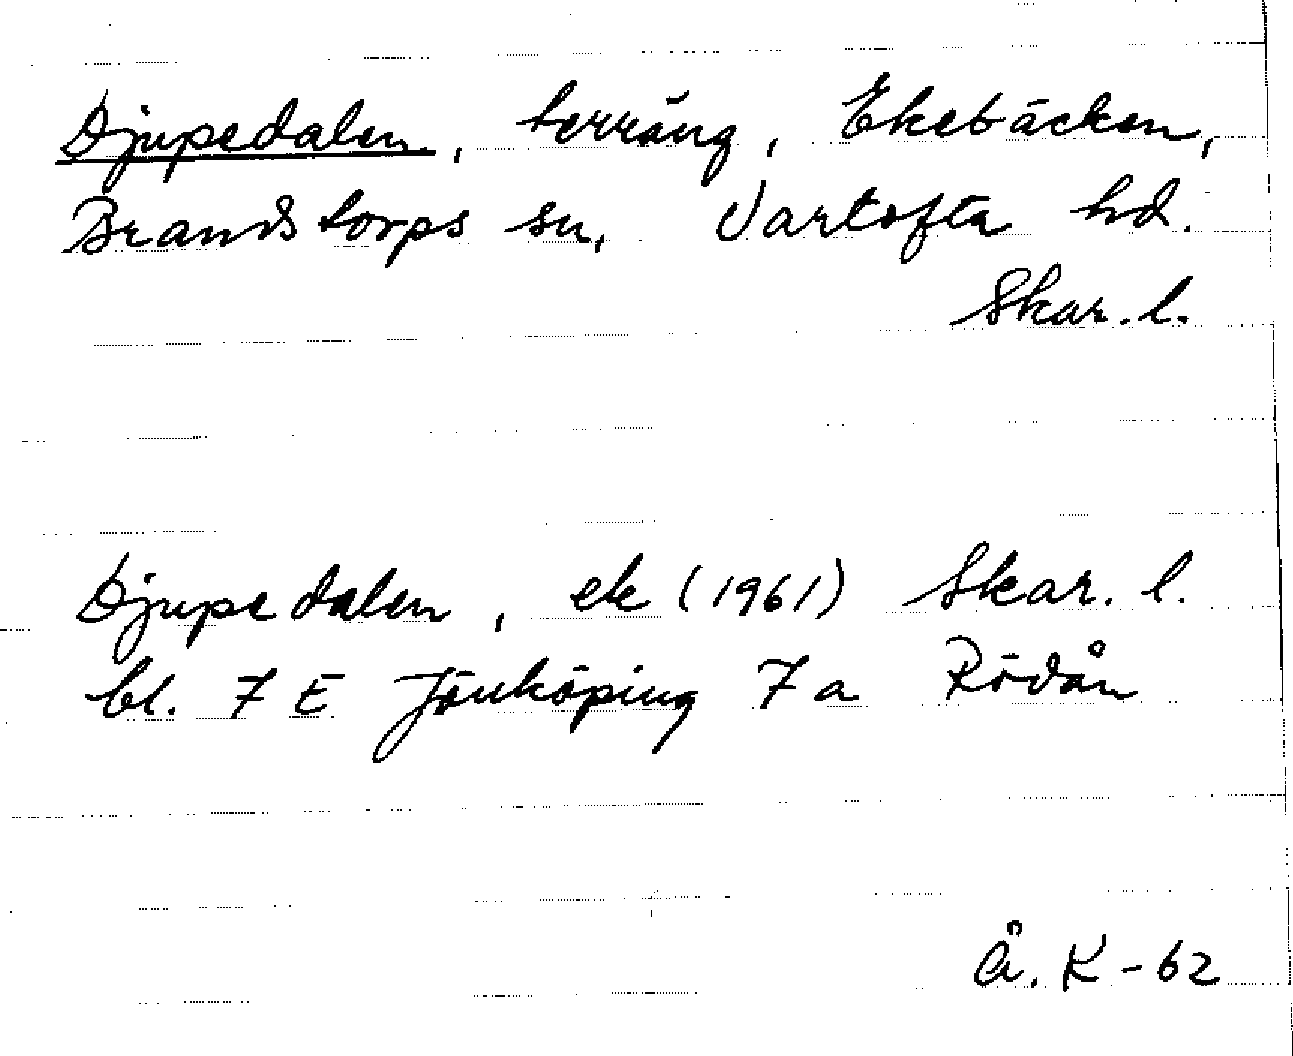 Djupedalen, terräng, Ekebäcken,
Brandstorps sn, Vartofta hd.
Skar. l.
Djupedalen, ek (1961) Skar. l.
bl. 7 E Jönköping 7 a Rödån
Å. K - 62